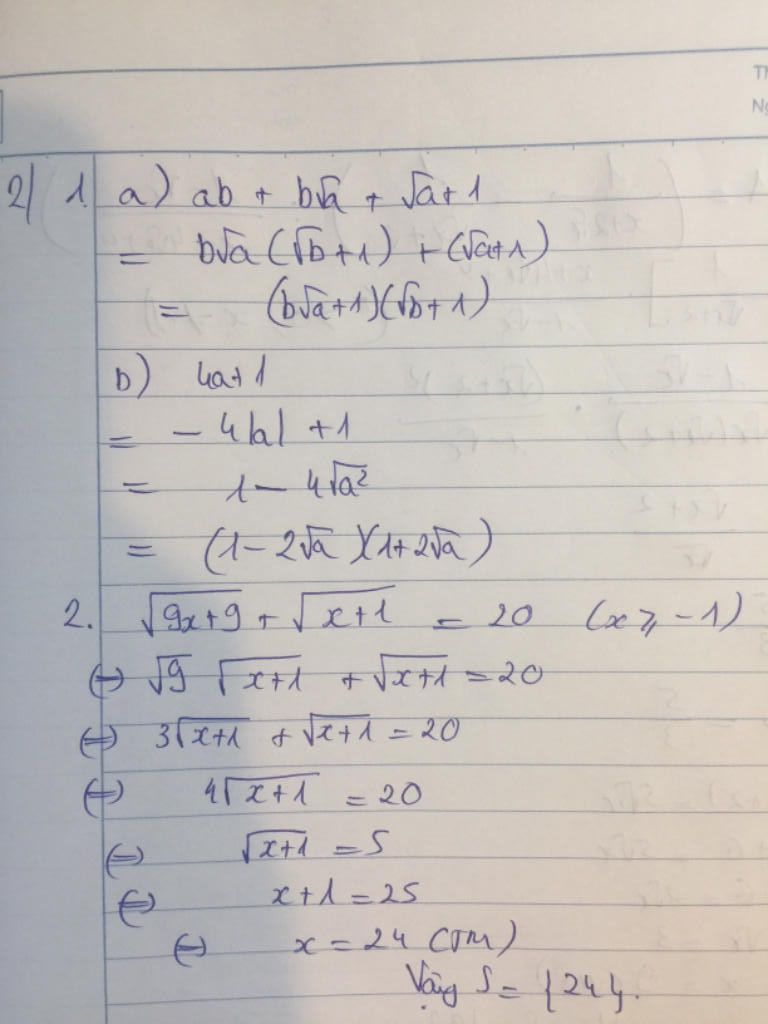 Th
Ng
2) 1. a) ab + b√a + √a + 1
= b√a (√b + 1) + (√a + 1)
= (b√a + 1)(√b + 1)
b) 4a + 1
= - 4|a| + 1
= 1 - 4√a²
= (1 - 2√a)(1 + 2√a)
2. √9x+9 + √x+1 = 20 (x ⩾ -1)
⇔ √9 √x+1 + √x+1 = 20
⇔ 3√x+1 + √x+1 = 20
⇔ 4√x+1 = 20
⇔ √x+1 = 5
⇔ x + 1 = 25
⇔ x = 24 (TM)
Vậy S = {24}.